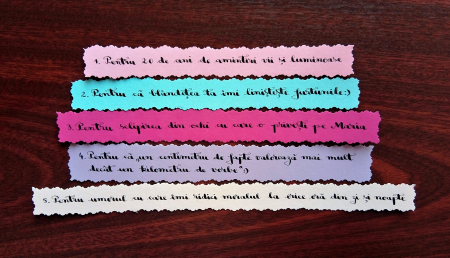 1. Pentru 20 de ani de amintiri vii și luminoase
2. Pentru că blândețea ta îmi liniștește furtunile:)
3. Pentru sclipirea din ochi cu care o privești pe Maria
4. Pentru că „un centimetru de fapte valorează mai mult
decât un kilometru de vorbe":)
5. Pentru umorul cu care îmi ridici moralul la orice oră din zi și noapte